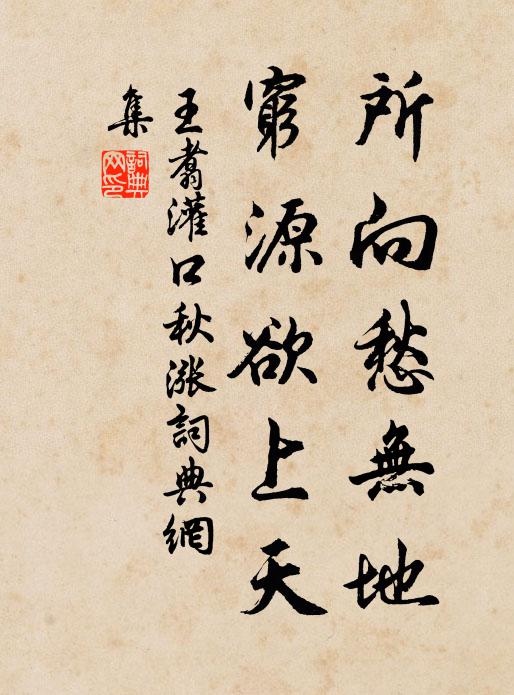 所向愁無地
窮源欲上天
王翥灌口秋漲詞典網
集
詞典
网印